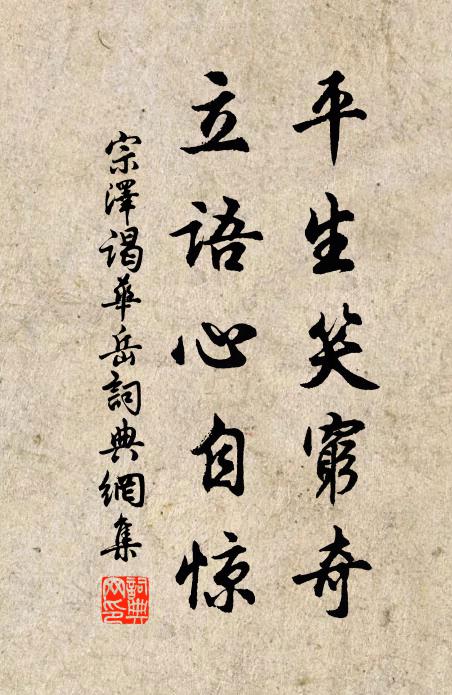 平生笑窮奇
立語心自惊
宗澤謁華岳詞典網集
詞典网印